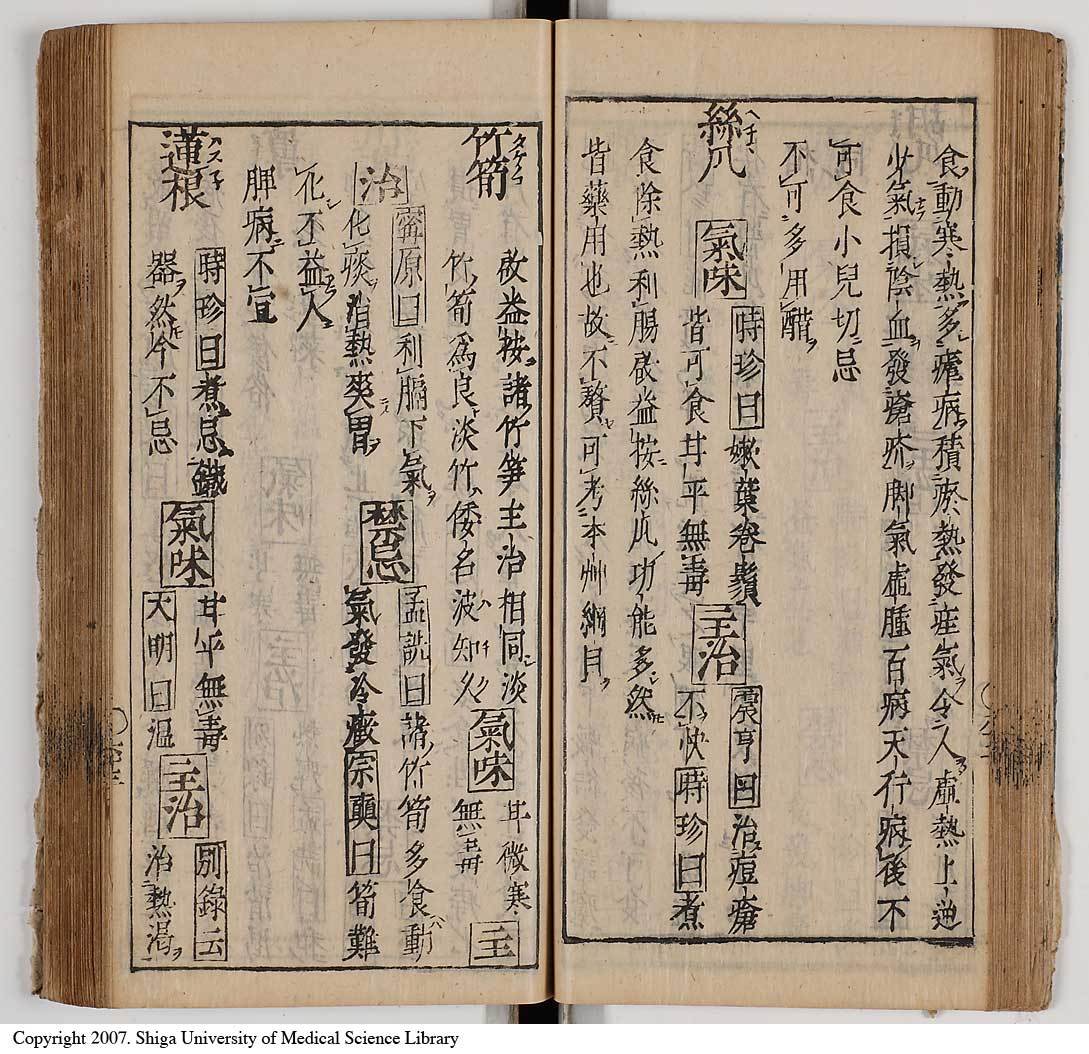 食動寒熱多瘧病積瘀熱發疰氣令人虛熱上逆
少氣損陰血發瘡疥脚氣虛腫百病天行病後不
可食小兒切忌
不可多用醋
絲瓜 ヘチマ
氣味 時珍曰嫩葉卷鬚
皆可食甘平無毒
主治 震亨曰治痘瘡
不快時珍曰煮
食除熱利腸啟益按絲瓜功能多然
皆藥用也故不贅可考本艸綱目
竹筍 タケノコ
啟益按諸竹笋主治相同淡
竹筍為良淡竹倭名波知久
氣味 甘微寒
無毒
主
治 寗原曰利膈下氣
化痰消熱爽胃
禁忌 孟詵曰諸竹筍多食動
氣發冷癥宗奭曰筍難
化不益人
脾病不宜
蓮根 ハスノ子
時珍曰煮忌鐵
器然今不忌
氣味 甘平無毒
大明曰温
主治 別錄云
治熱渴
Copyright 2007. Shiga University of Medical Science Library